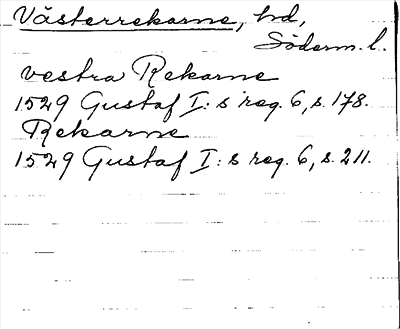 Västerrekarne, hd,
Söderm. l.
vestra Rekarne
1529 Gustaf I:s reg. 6, s. 178.
Rekarne
1529 Gustaf I:s reg. 6, s. 211.